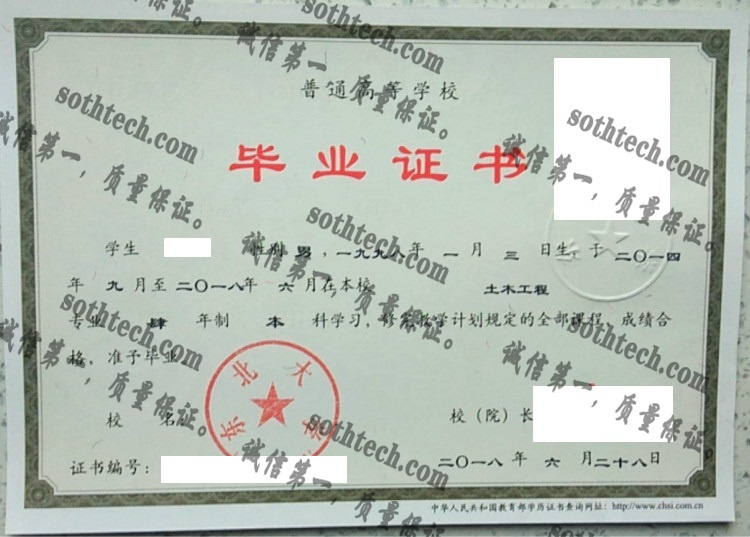 普通高等学校
毕业证书
学生 性别 男，一九九八年 一 月 三 日生，于 二〇一四
年 九 月至 二〇一八年 六 月在本校 土木工程
专业 肆 年制 本 科学习，修完教学计划规定的全部课程，成绩合
格，准予毕业
校 名
校（院）长
证书编号：
二〇一八 年 六 月二十八日
中华人民共和国教育部学历证书查询网址：http://www.chsi.com.cn
东北大学
sothtech.com
诚信第一，质量保证。
sothtech.com
诚信第一，质量保证。
sothtech.com
诚信第一，质量保证。
sothtech.com
诚信第一，质量保证。
sothtech.com
诚信第一，质量保证。
sothtech.com
诚信第一，质量保证。
sothtech.com
诚信第一，质量保证。
sothtech.com